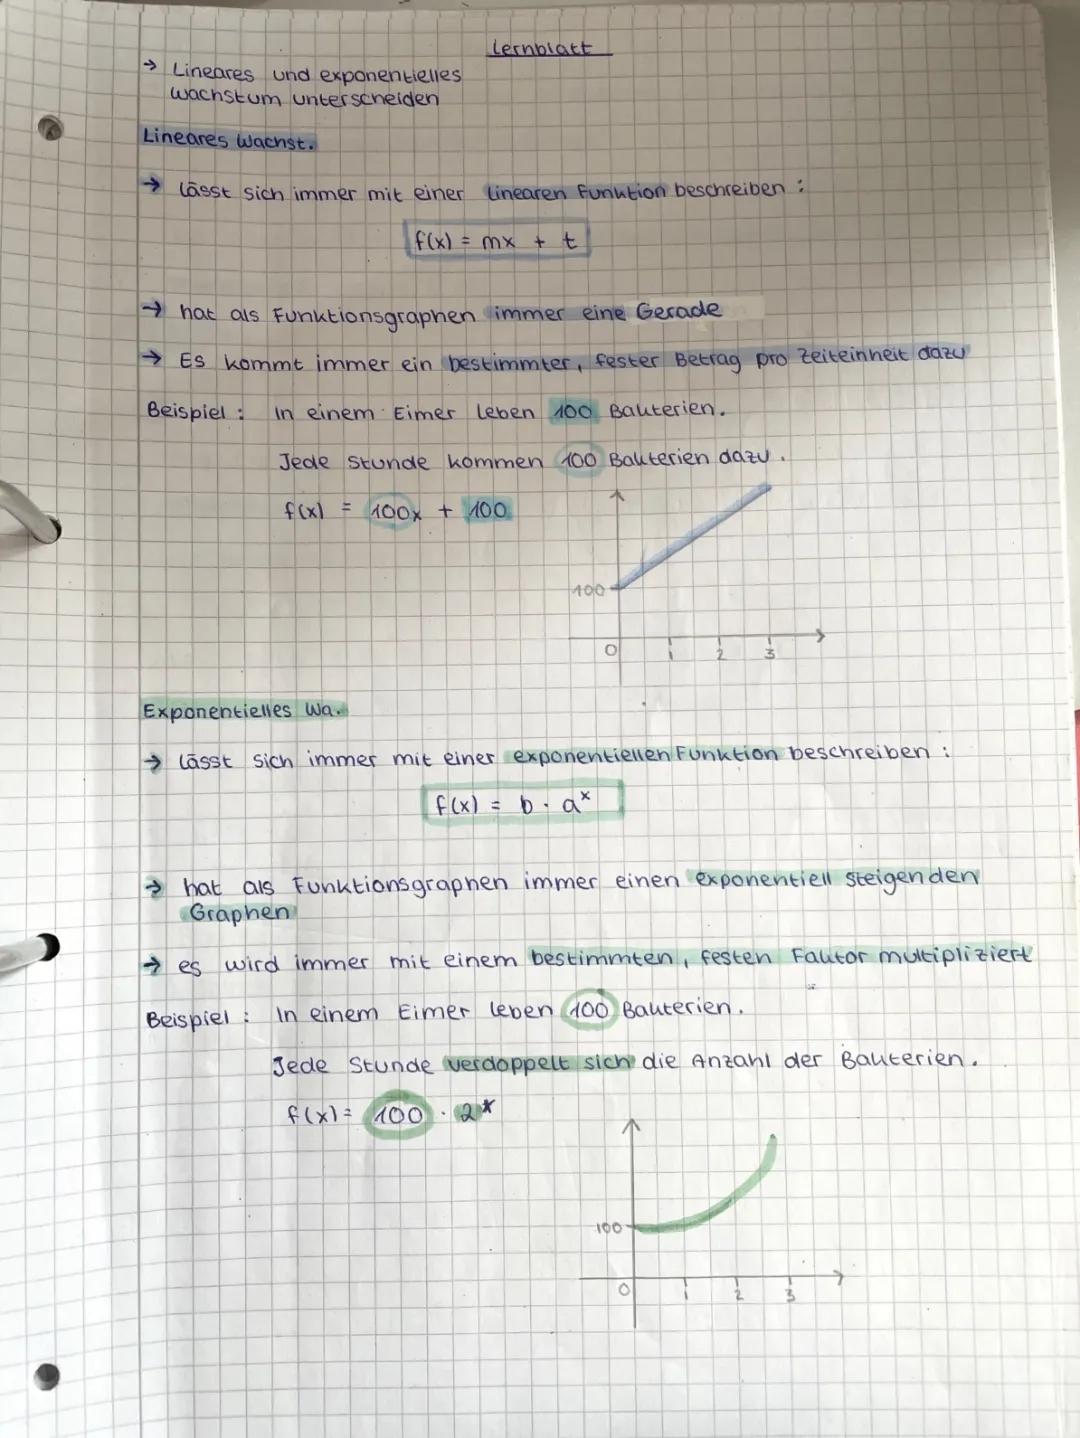 Lernblatt
→ Lineares und exponentielles
wachstum unterscheiden
Lineares Wachst.
→ lässt sich immer mit einer linearen Funktion beschreiben :
f(x) = mx + t
→ hat als Funktionsgraphen immer eine Gerade
→ Es kommt immer ein bestimmter, fester Betrag pro Zeiteinheit dazu
Beispiel : In einem Eimer leben 100 Bakterien.
Jede Stunde kommen 100 Bakterien dazu.
f(x) = 100x + 100
100
0 1 2 3
Exponentielles Wa.
→ lässt sich immer mit einer exponentiellen Funktion beschreiben :
f(x) = b · aˣ
→ hat als Funktionsgraphen immer einen exponentiell steigenden
Graphen
→ es wird immer mit einem bestimmten, festen Faktor multipliziert
Beispiel : In einem Eimer leben 100 Bakterien.
Jede Stunde verdoppelt sich die Anzahl der Bakterien.
f(x) = 100 · 2ˣ
100
0 1 2 3